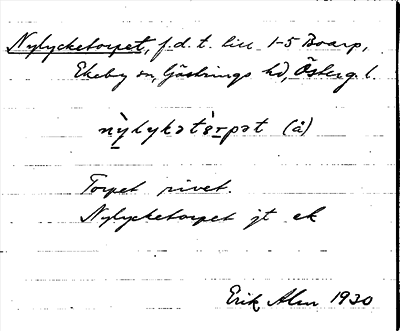 Nylycketorpet, f.d. t. till 1-5 Boarp,
Ekeby sn, Göstrings hd, Österg. l.
nỳlykətòrpət (å)
Torpet rivet.
Nylycketorpet jt ek
Erik Alm 1930